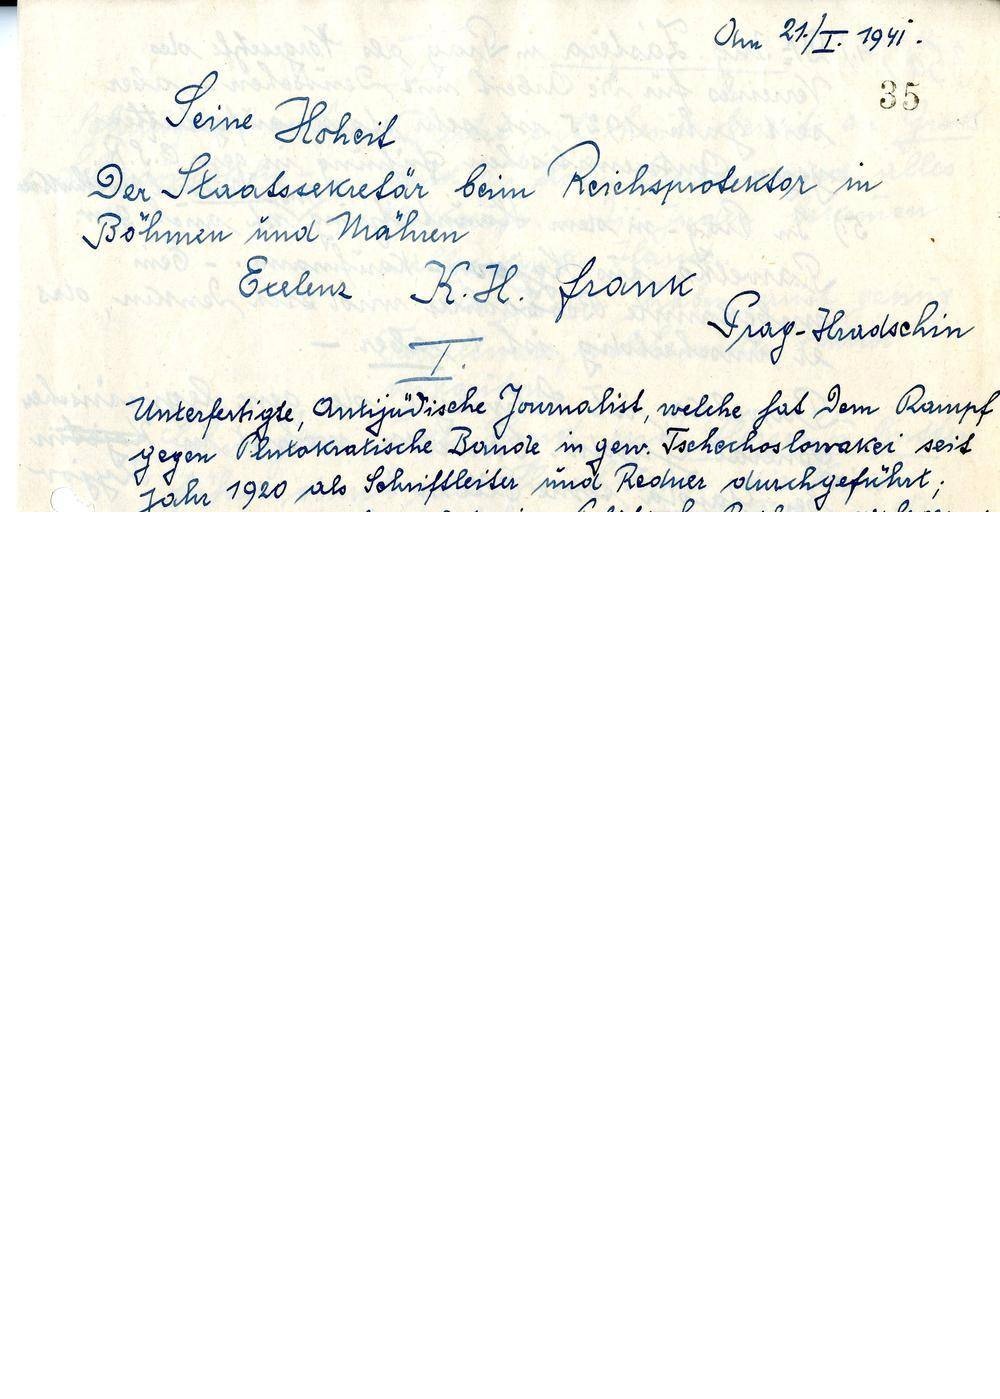 Am 21./I. 1941.
35
Seine Hoheit
Der Staatssekretär beim Reichsprotektor in
Böhmen und Mähren
Exelenz K. H. Frank
Prag-Hradschin
I.
Unterfertigte, Antijüdische Journalist, welche hat dem Kampf
gegen Plutokratische Bande in gew. Tschechoslowakei seit
Jahr 1920 als Schriftleiter und Redner durchgeführt;